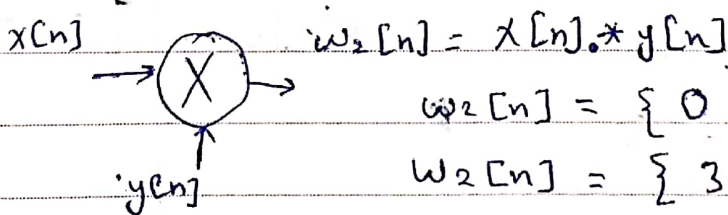 x[n]
X
w₂[n] = x[n].* y[n]
w₂[n] = { 0
y[n]
w₂[n] = { 3